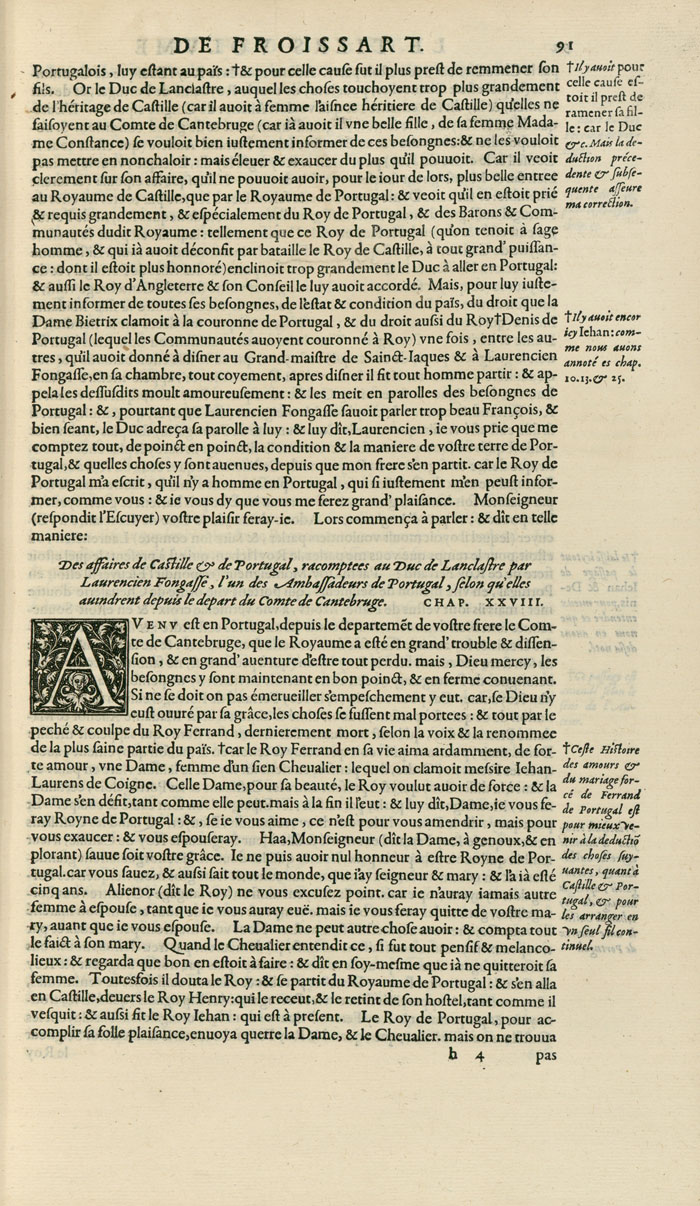 DE FROISSART. 91
Portugalois, luy eſtant au païs: †& pour celle cauſe fut il plus preſt de remmener ſon
fils. Or le Duc de Lanclaſtre, auquel les choſes touchoyent trop plus grandement
de l'héritage de Caſtille (car il auoit à femme l'aiſnee héritiere de Caſtille) qu'elles ne
faiſoyent au Comte de Cantebruge (car ià auoit il vne belle fille, de ſa femme Mada-
me Conſtance) ſe vouloit bien iuſtement informer de ces beſongnes:& ne les vouloit
pas mettre en nonchaloir: mais éleuer & exaucer du plus qu'il pouuoit. Car il veoit
clerement ſur ſon affaire, qu'il ne pouuoit auoir, pour le iour de lors, plus belle entree
au Royaume de Caſtille, que par le Royaume de Portugal: & veoit qu'il en eſtoit prié
& requis grandement, & eſpécialement du Roy de Portugal, & des Barons & Com-
munautés dudit Royaume: tellement que ce Roy de Portugal (qu'on tenoit à ſage
homme, & qui ià auoit déconfit par bataille le Roy de Caſtille, à tout grand' puiſſan-
ce: dont il eſtoit plus honnoré) enclinoit trop grandement le Duc à aller en Portugal:
& auſſi le Roy d'Angleterre & ſon Conſeil le luy auoit accordé. Mais, pour luy iuſte-
ment informer de toutes ſes beſongnes, de l'eſtat & condition du païs, du droit que la
Dame Bietrix clamoit à la couronne de Portugal, & du droit auſſi du Roy†Denis de
Portugal (lequel les Communautés auoyent couronné à Roy) vne fois, entre les au-
tres, qu'il auoit donné à diſner au Grand-maiſtre de Sainct-Iaques & à Laurencien
Fongaſſe, en ſa chambre, tout coyement, apres diſner il fit tout homme partir: & ap-
pela les deſſuſdits moult amoureuſement: & les meit en parolles des beſongnes de
Portugal: &, pourtant que Laurencien Fongaſſe ſauoit parler trop beau François, &
bien ſeant, le Duc adreça ſa parolle à luy: & luy dit, Laurencien, ie vous prie que me
comptez tout, de poinct en poinct, la condition & la maniere de voſtre terre de Por-
tugal, & quelles choſes y ſont auenues, depuis que mon frere s'en partit. car le Roy de
Portugal m'a eſcrit, qu'il n'y a homme en Portugal, qui ſi iuſtement m'en peuſt infor-
mer, comme vous: & ie vous dy que vous me ferez grand' plaiſance. Monſeigneur
(reſpondit l'Eſcuyer) voſtre plaiſir feray-ie. Lors commença à parler: & dit en telle
maniere:
†Il y auoit pour
celle cauſe eſ-
toit il preſt de
ramener ſa fil-
le: car le Duc
&c. Mais la de-
duction préce-
dente & ſubſe-
quente aſſeure
ma correction.
†Il y auoit encor
icy Iehan: com-
me nous auons
annoté es chap.
10.13.& 25.
Des affaires de Caſtille & de Portugal, racomptees au Duc de Lanclaſtre par
Laurencien Fongaſſe, l'un des Ambaſſadeurs de Portugal, ſelon qu'elles
auindrent depuis le depart du Comte de Cantebruge. CHAP. XXVIII.
AVENV eſt en Portugal, depuis le departemēt de voſtre frere le Com-
te de Cantebruge, que le Royaume a eſté en grand' trouble & diſſen-
ſion, & en grand' auenture d'eſtre tout perdu. mais, Dieu mercy, les
beſongnes y ſont maintenant en bon poinct, & en ferme conuenant.
Si ne ſe doit on pas émerueiller s'empeſchement y eut. car, ſe Dieu n'y
euſt ouuré par ſa grâce, les choſes ſe fuſſent mal portees: & tout par le
peché & coulpe du Roy Ferrand, dernierement mort, ſelon la voix & la renommee
de la plus ſaine partie du païs. †car le Roy Ferrand en ſa vie aima ardamment, de for-
te amour, vne Dame, femme d'un ſien Cheualier: lequel on clamoit meſsire Iehan-
Laurens de Coigne. Celle Dame, pour ſa beauté, le Roy voulut auoir de force: & la
Dame s'en défit, tant comme elle peut. mais à la fin il l'eut: & luy dit, Dame, ie vous fe-
ray Royne de Portugal: &, ſe ie vous aime, ce n'eſt pour vous amendrir, mais pour
vous exaucer: & vous eſpouſeray. Haa, Monſeigneur (dît la Dame, à genoux, & en
plorant) ſauue ſoit voſtre grâce. Ie ne puis auoir nul honneur à eſtre Royne de Por-
tugal. car vous ſauez, & auſsi fait tout le monde, que i'ay ſeigneur & mary: & l'à ià eſté
cinq ans. Alienor (dît le Roy) ne vous excuſez point. car ie n'auray iamais autre
femme à eſpouſe, tant que ie vous auray euë. mais ie vous feray quitte de voſtre ma-
ry, auant que ie vous eſpouſe. La Dame ne peut autre choſe auoir: & compta tout
le faict à ſon mary. Quand le Cheualier entendit ce, ſi fut tout penſif & melanco-
lieux: & regarda que bon en eſtoit à faire: & dît en ſoy-meſme que ià ne quitteroit ſa
femme. Toutesfois il douta le Roy: & ſe partit du Royaume de Portugal: & s'en alla
en Caſtille, deuers le Roy Henry: qui le receut, & le retint de ſon hoſtel, tant comme il
veſquit: & auſsi fit le Roy Iehan: qui eſt à preſent. Le Roy de Portugal, pour ac-
complir ſa folle plaiſance, enuoya querre la Dame, & le Cheualier. mais on ne trouua
†Ceſte Hiſtoire
des amours &
du mariage for-
cé de Ferrand
de Portugal eſt
pour mieux ve-
nir à la deductiō
des choſes ſuy-
uantes, quant à
Caſtille & Por-
tugal, & pour
les arranger en
vn ſeul fil con-
tinuel.
h 4 pas